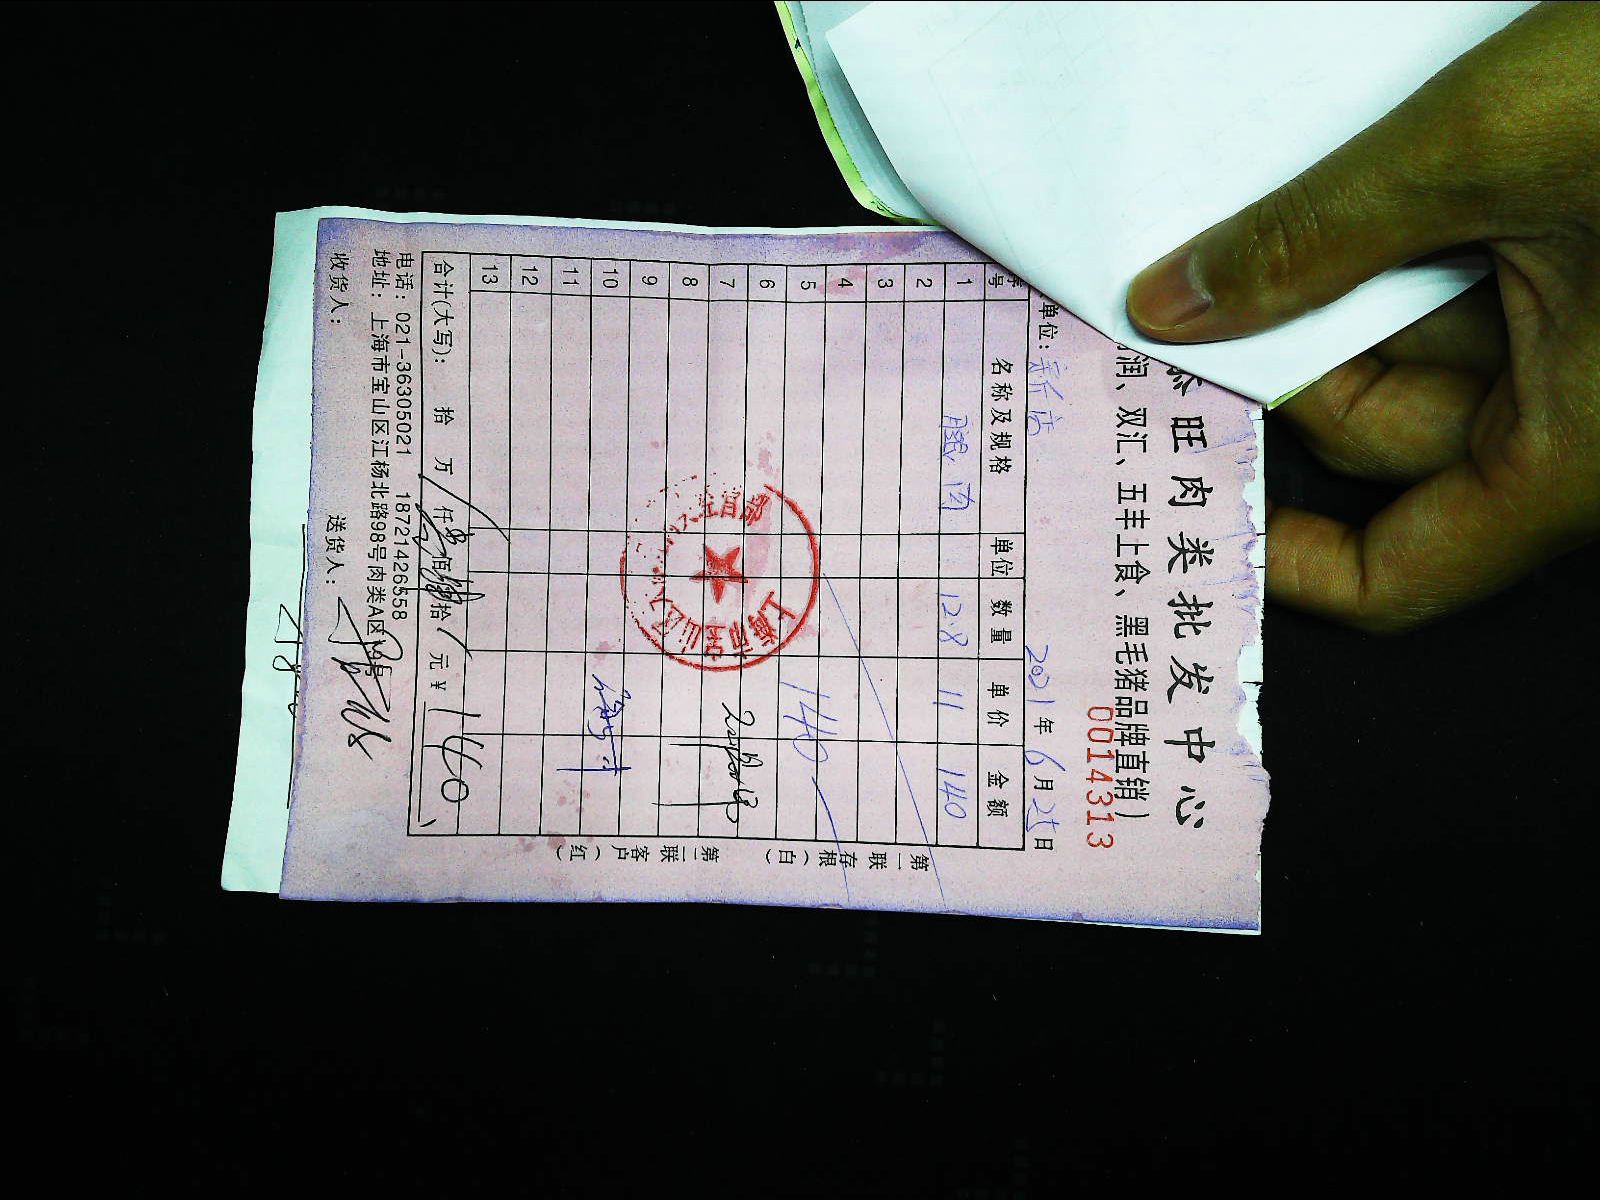 旺肉类批发中心
润、双汇、五丰上食、黑毛猪品牌直销）
00143313
单位： 2021年6月25日
序号 名称及规格 单位 数量 单价 金额
1 腿肉 12.8 11 140
2
3
4
5 140
6
7
8
9
10
11
12
13
合计(大写)： 拾 万 仟 佰 拾 元 ¥ 140
电话：021-36305021 18721426558
地址：上海市宝山区江杨北路98号肉类A区
收货人： 送货人：
第一联 存根（白） 第二联 客户（红）
上海市宝山区